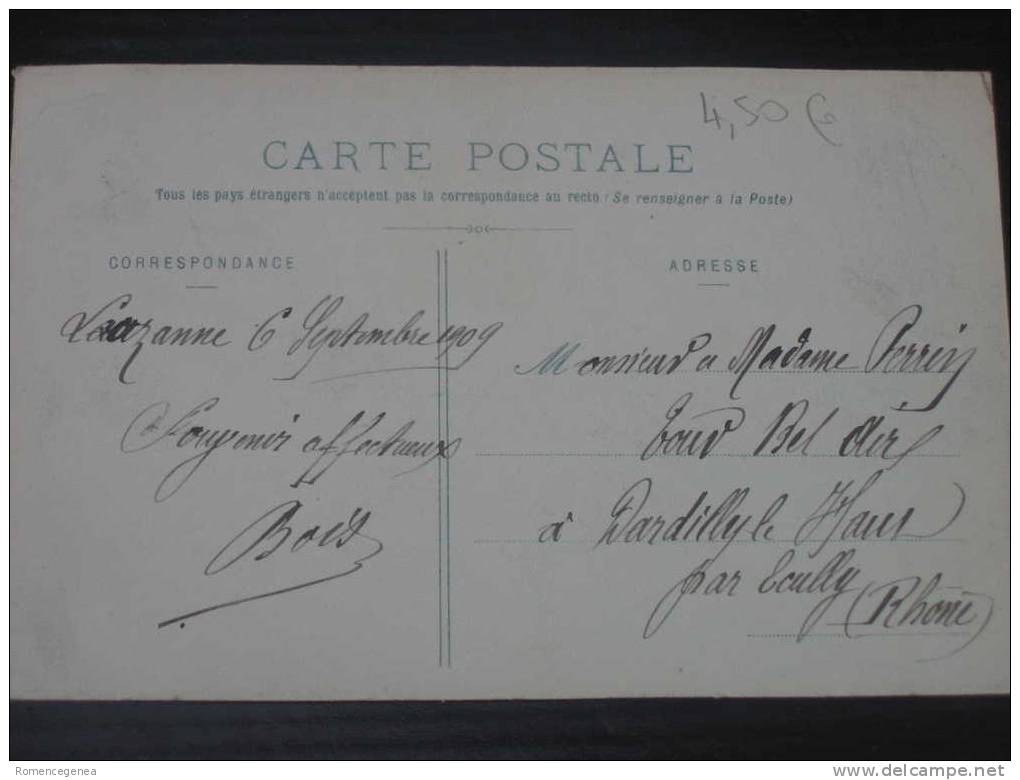 4,50 €
CARTE POSTALE
Tous les pays étrangers n'acceptent pas la correspondance au recto (Se renseigner à la Poste)
CORRESPONDANCE
Lauzanne 6 Septembre 1909
Souvenir affectueux
Bois
ADRESSE
Monsieur e Madame Perrin
Tour Bel Air
à Dardilly le Haut
par Ecully
(Rhone)
Romencegenea
delcampe.net